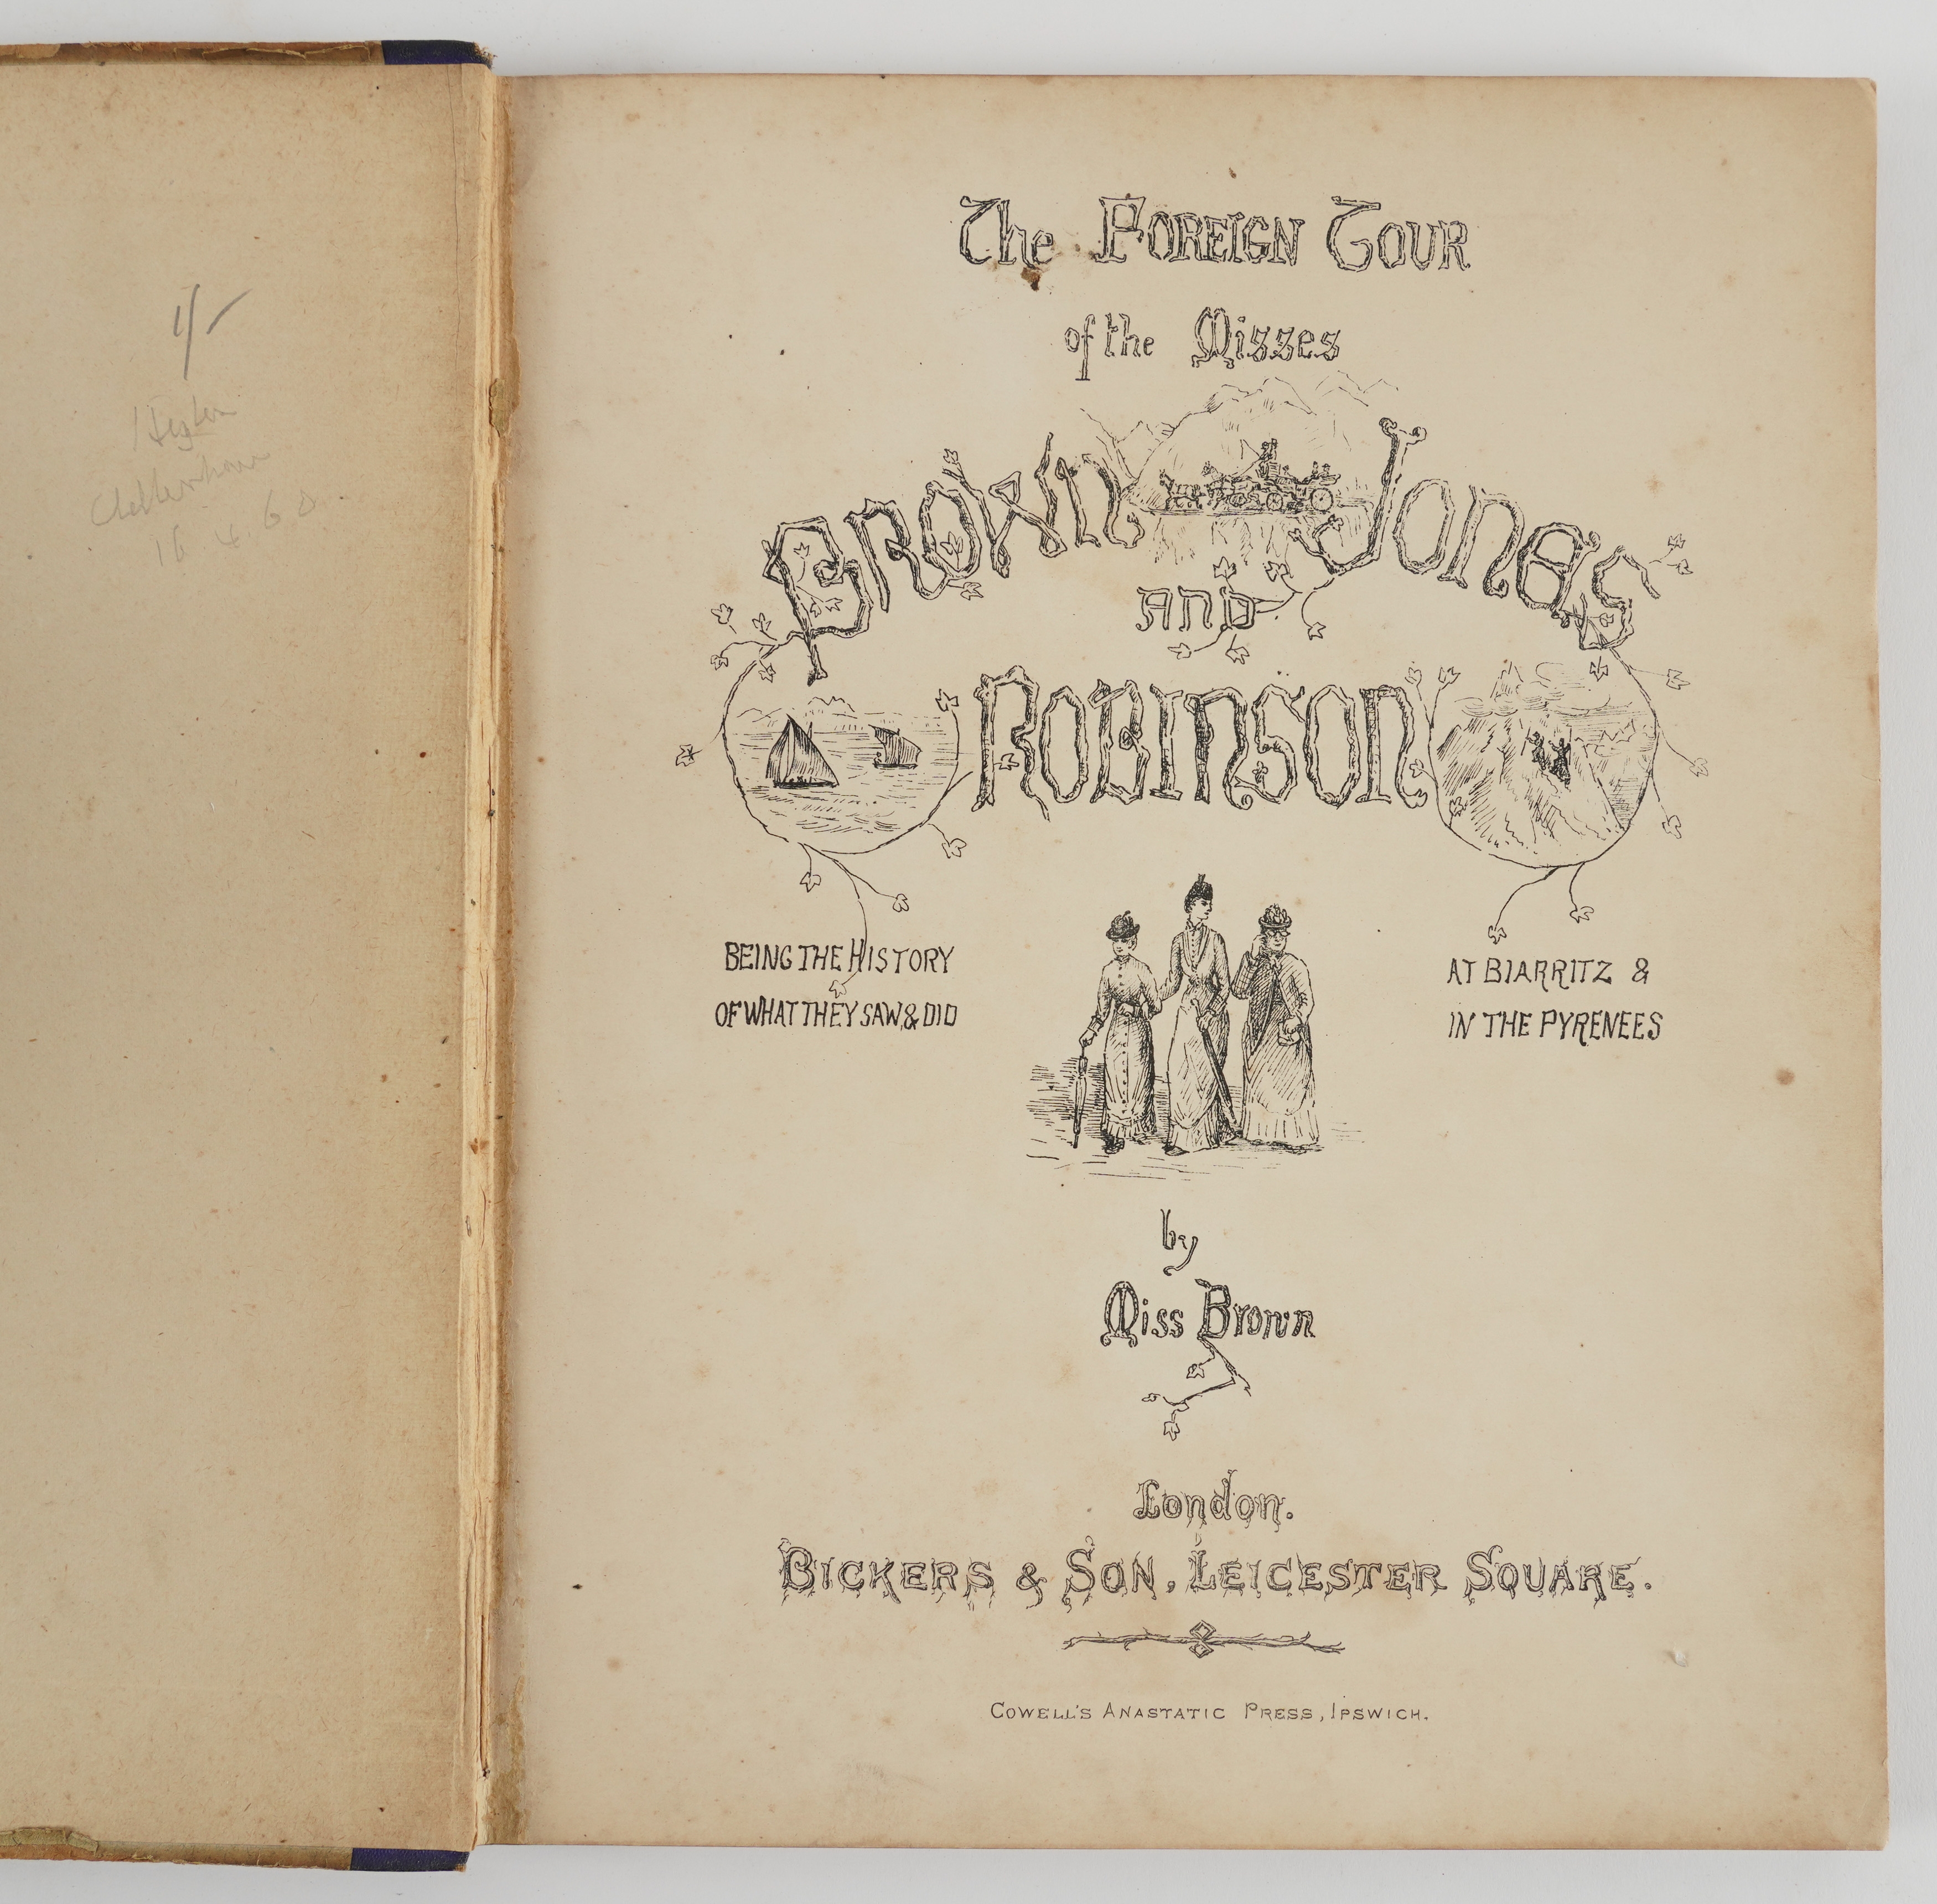 1/-
16 4 60
The FOREIGN TOUR
of the Misses
BROWN JONES
AND
ROBINSON
BEING THE HISTORY
OF WHAT THEY SAW, & DID
AT BIARRITZ &
IN THE PYRENEES
by
Miss Brown
London.
BICKERS & SON, LEICESTER SQUARE.
COWELL'S ANASTATIC PRESS, IPSWICH.